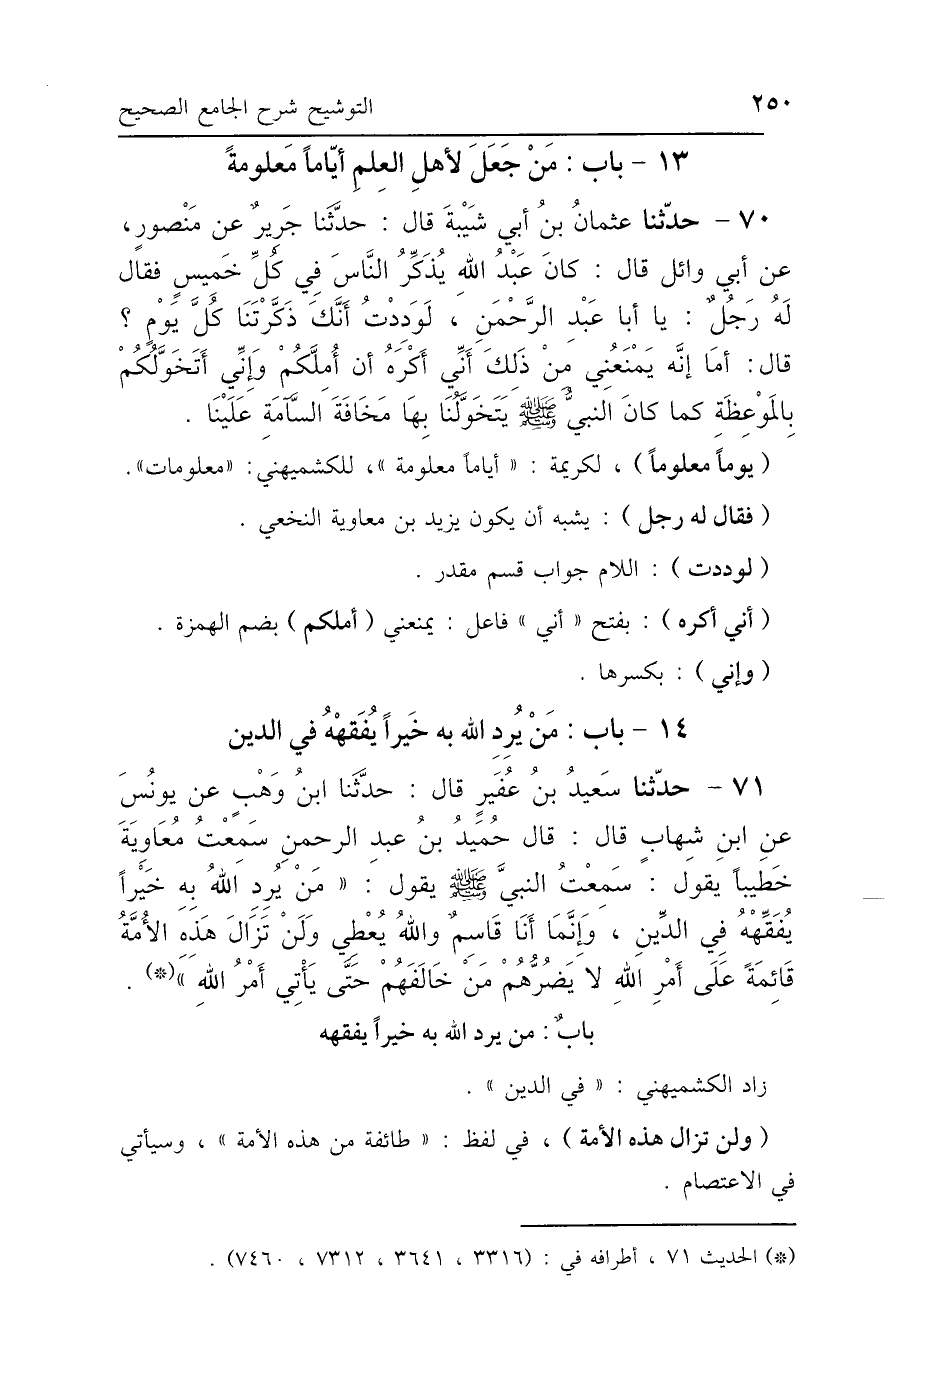 ٢٥٠ التوشيح شرح الجامع الصحيح
١٣ - باب : مَنْ جَعَلَ لأهلِ العِلمِ أيّاماً مَعلومةً
٧٠ - حدّثنا عثمانُ بنُ أبي شَيْبةَ قال : حدَّثَنا جَريرٌ عن مَنْصورٍ ،
عن أبي وائل قال : كانَ عَبْدُ اللهِ يُذَكِّرُ النَّاسَ فِي كُلِّ خَميسٍ فقال
لَهُ رَجُلٌ : يا أبا عَبْدِ الرَّحْمَنِ ، لَوَدِدْتُ أَنَّكَ ذَكَّرْتَنَا كُلَّ يَوْمٍ ؟
قال: أمَا إنَّه يَمْنَعُنِي مِنْ ذَلِكَ أَنِّي أَكْرَهُ أن أُمِلَّكُمْ وَإِنِّي أَتَخَوَّلُكُمْ
بِالمَوْعِظَةِ كما كانَ النبيُّ ﷺ يَتَخَوَّلُنَا بِهَا مَخَافَةَ السَّآمَةِ عَلَيْنَا .
( يوماً معلوماً ) ، لكريمة : « أياماً معلومة »، للكشميهني: «معلومات».
( فقال له رجل ) : يشبه أن يكون يزيد بن معاوية النخعي .
( لوددت ) : اللام جواب قسم مقدر .
( أني أكره ) : بفتح « أني » فاعل : يمنعني ( أملكم ) بضم الهمزة .
( وإني ) : بكسرها .
١٤ - باب : مَنْ يُرِدِ الله به خَيراً يُفَقهْهُ في الدين
٧١ - حدّثنا سَعيدُ بنُ عُفَيرٍ قال : حدَّثَنا ابنُ وَهْبٍ عن يونُسَ
عن ابنِ شهابٍ قال : قال حُمَيدُ بنُ عبدِ الرحمنِ سَمعْتُ مُعَاوِيَةَ
خَطيباً يقول : سَمعْتُ النبيَّ ﷺ يقول : « مَنْ يُرِدِ اللهُ بِهِ خَيْراً
يُفَقِّهْهُ فِي الدِّينِ ، وَإِنَّمَا أَنَا قَاسِمٌ واللهُ يُعْطِي وَلَنْ تَزَالَ هَذِهِ الأُمَّةُ
قَائِمَةً عَلَى أَمْرِ اللهِ لا يَضُرُّهُم مَنْ خَالَفَهُمْ حَتَّى يَأْتِي أَمْرُ اللهِ »(*) .
بابٌ : من يرد الله به خيراً يفقهه
زاد الكشميهني : « في الدين » .
( ولن تزال هذه الأمة ) ، في لفظ : « طائفة من هذه الأمة » ، وسيأتي
في الاعتصام .
(*) الحديث ٧١ ، أطرافه في : (٣٣١٦ ، ٣٦٤١ ، ٧٣١٢ ، ٧٤٦٠) .